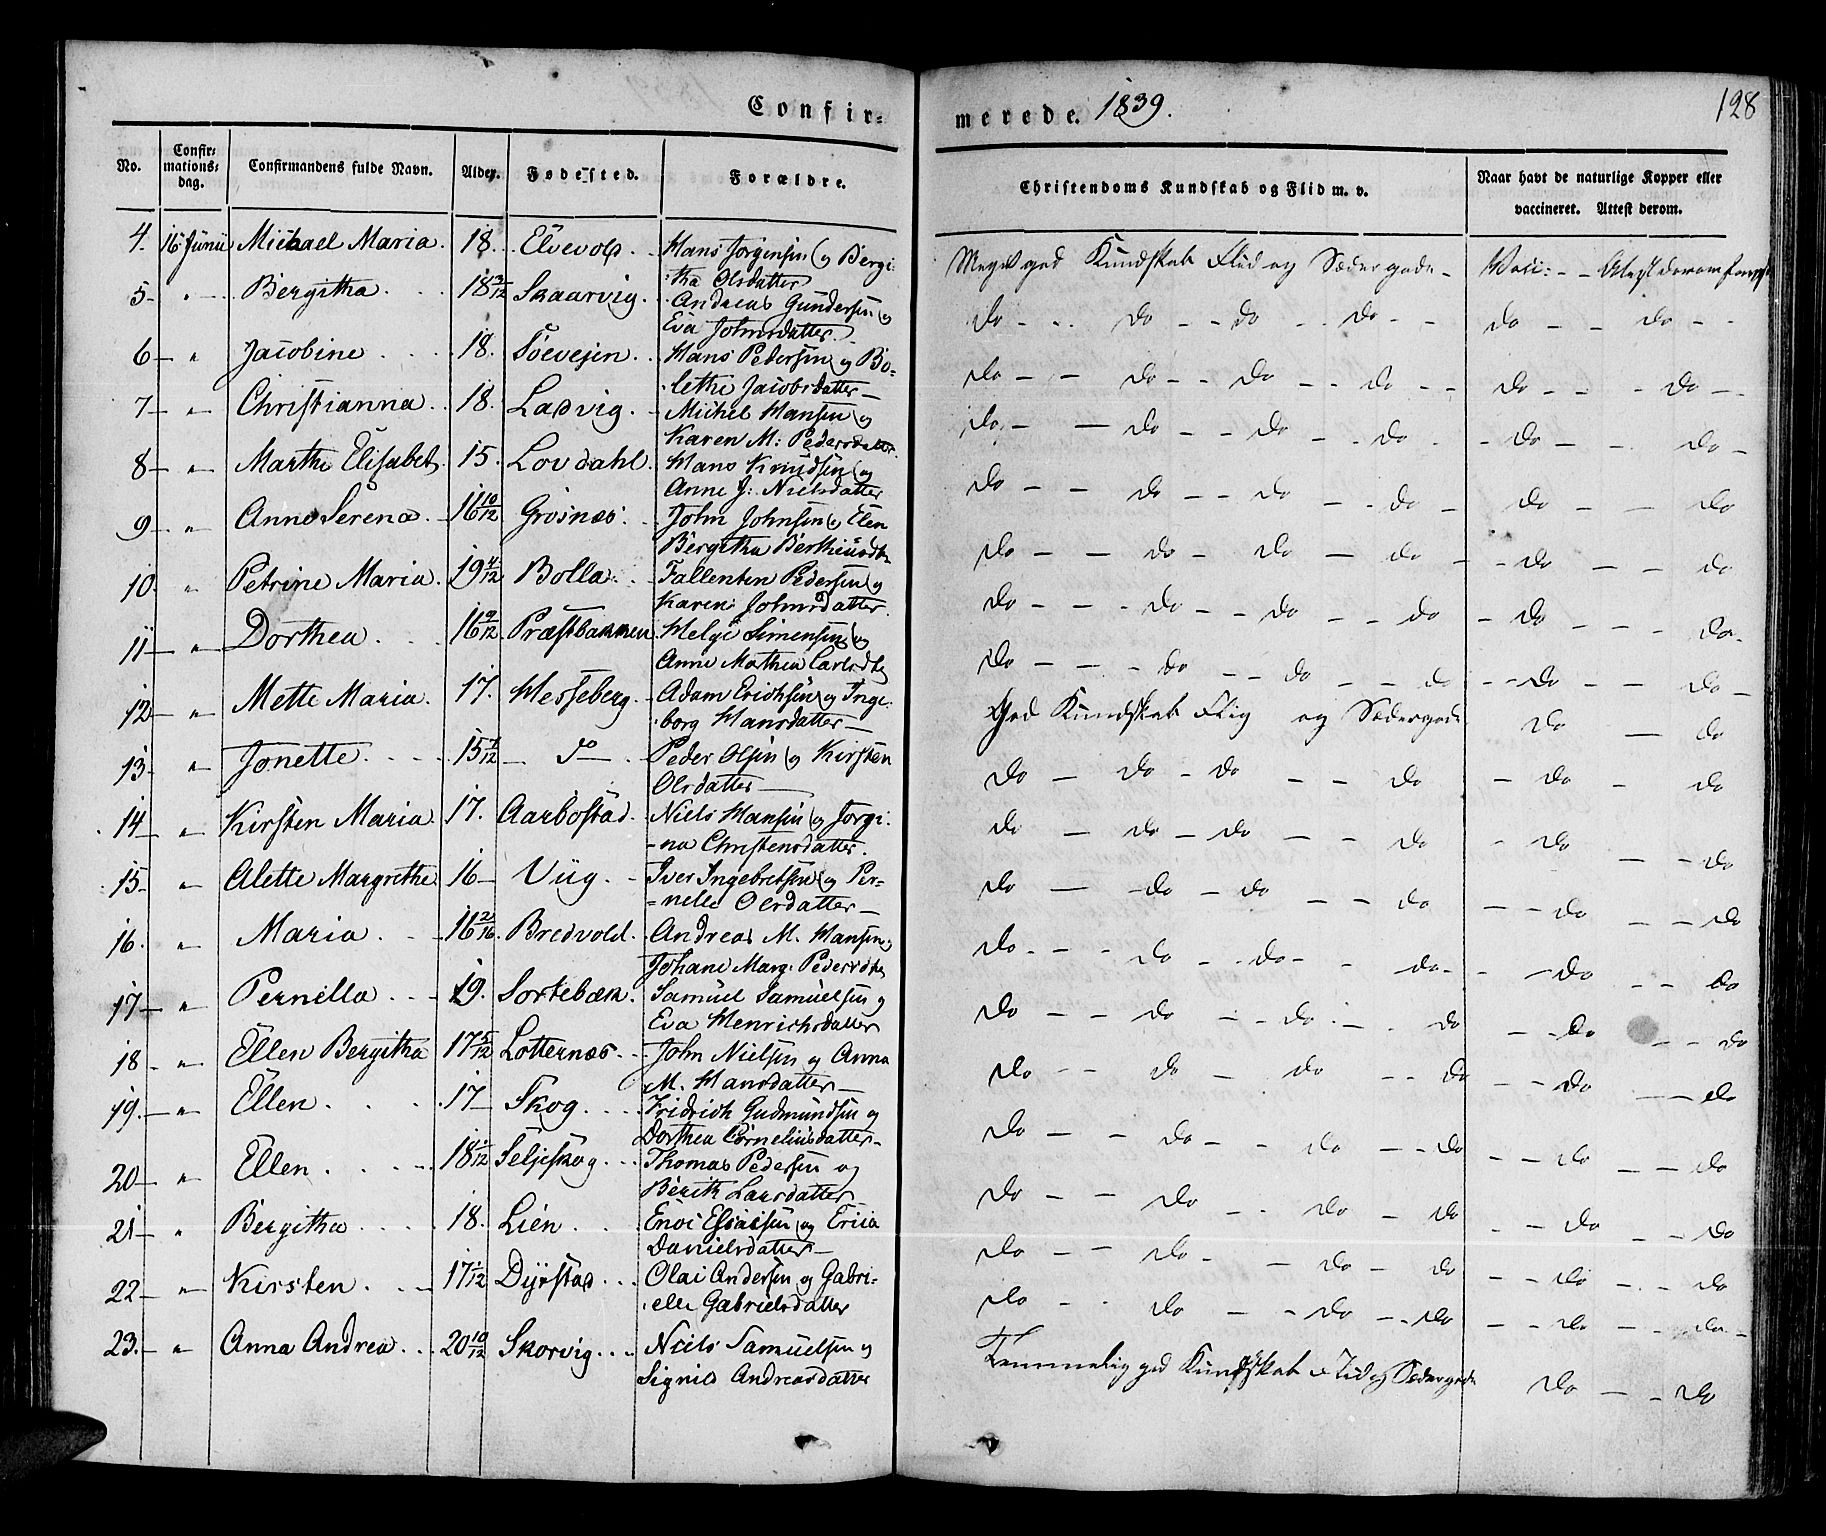 Confir-
merede. 1839.
128
No.
Confir-
mations-
dag.
Confirmandens fulde Navn.
Alder.
Fødested.
Forældre.
Christendoms Kundskab og Flid m. v.
Naar havt de naturlige Kopper eller
vaccineret. Attest derom.
4. 16 Junii Michael Maria. 18. Elvevold. Hans Jørgensen og Bergi:
:tha Olsdatter
Meget god Kundskab Flid og Sæder gode - Vacc: - - Attest derom
5 - " - Bergitha. 18 3/12 Skaarvig. Andreas Gundersen og
Eva Johnsdatter.
do - - do - - do - - do - - do - - do - -
6 - " Jacobine. 18. Søevejen. Hans Pedersen og Bo-
:lethe Jacobsdatter -
do - - do - - do - - do - - do - - do - -
7 - " - Christianna. 18. Ladvig. Michel Hansen og
Karen M: Pedersdatter.
do - - do - - do - - do - - do - - do -
8 - " - Marthe Elisabet. 15. Lovdahl. Hans Knudsen og
Anne J: Nielsdatter
do - - do - - do - - do - do - - do
9 - " - Anne Serena. 16 10/12 Grosnæs. John Johnsen og Elen
Bergitha
do - - do - do - do - - do - - do
10. " Petrine Maria. 19 4/12 Bolla. Fallenten Pedersen og
Karen Johnsdatter.
do - - - do - - do - - do - do - - - do -
11 - " - Dorthea. 16 9/12 Præstbakken. Helge Simensen og
Anne Marthea Carlsdtr
do - - - do - - do - - do - - do - - do -
12 - " - Mette Maria. 17. Hesseberg. Adam Erichsen og Inge:
:borg Hansdatter -
God Kundskab Flig og Sædergode do - do
13 - " - Jonette. 15 7/12 - do - Peder Olsen og Kirsten
Olsdatter -
do - do - do - - do - do - do
14 - " - Kirsten Maria. 17. Aarbostad. Niels Hansen og Jørgi:
-na Christensdatter.
do - do - do - - do - do - - do
15 - " - Alette Margrethe 16 - Viig. - Iver Ingebretsen og Per=
=nele Olsdatter -
do - do - do - - do - - do - - do
16. " Maria. 16 2/16 Bredvold. Andreas M. Hansen og
Johane Marg: Pedersdtr
do - - - do - - do - - do - - - do - - do
17 - " - Pernilla. 19. Sortebæk. Samuel Samuelsen og
Eva Henrichsdatter
do - - do - - do - - do - - do - - do
18 - " - Ellen Bergitha 17 5/12 Lotternæs. John Nielsen og Anna
M. Hansdatter -
do - - do - do - - do - - do - - do
19. - " - Ellen. 17 - Skog. Fridrich Gudmundsen og
Dorthea Cornelius datter -
do - - do - - do - - do - - do - - do
20 - " - Ellen. 18 1/12 Seljeskog. Thomas Pedersen og
Berith Larsdatter
do - - do - - do - do - - do - - do
21 - " Bergitha. 18. Lien. Enoc Esaisen og Ericia
Danielsdatter -
do - - do - - do - do - - do - - do
22 - " - Kirsten. 17 1/12 Dyrstad. Olai Andersen og Gabri-
:ele Gabrielsdatter
do - - do - - do - - do - - do - - do -
23. - " - Anna Andrea. 20 10/12 Skorvig. Niels Samuelsen og
Signid Andreasdatter
Temmelig god Kundskab Flid og Sædergode do - - do